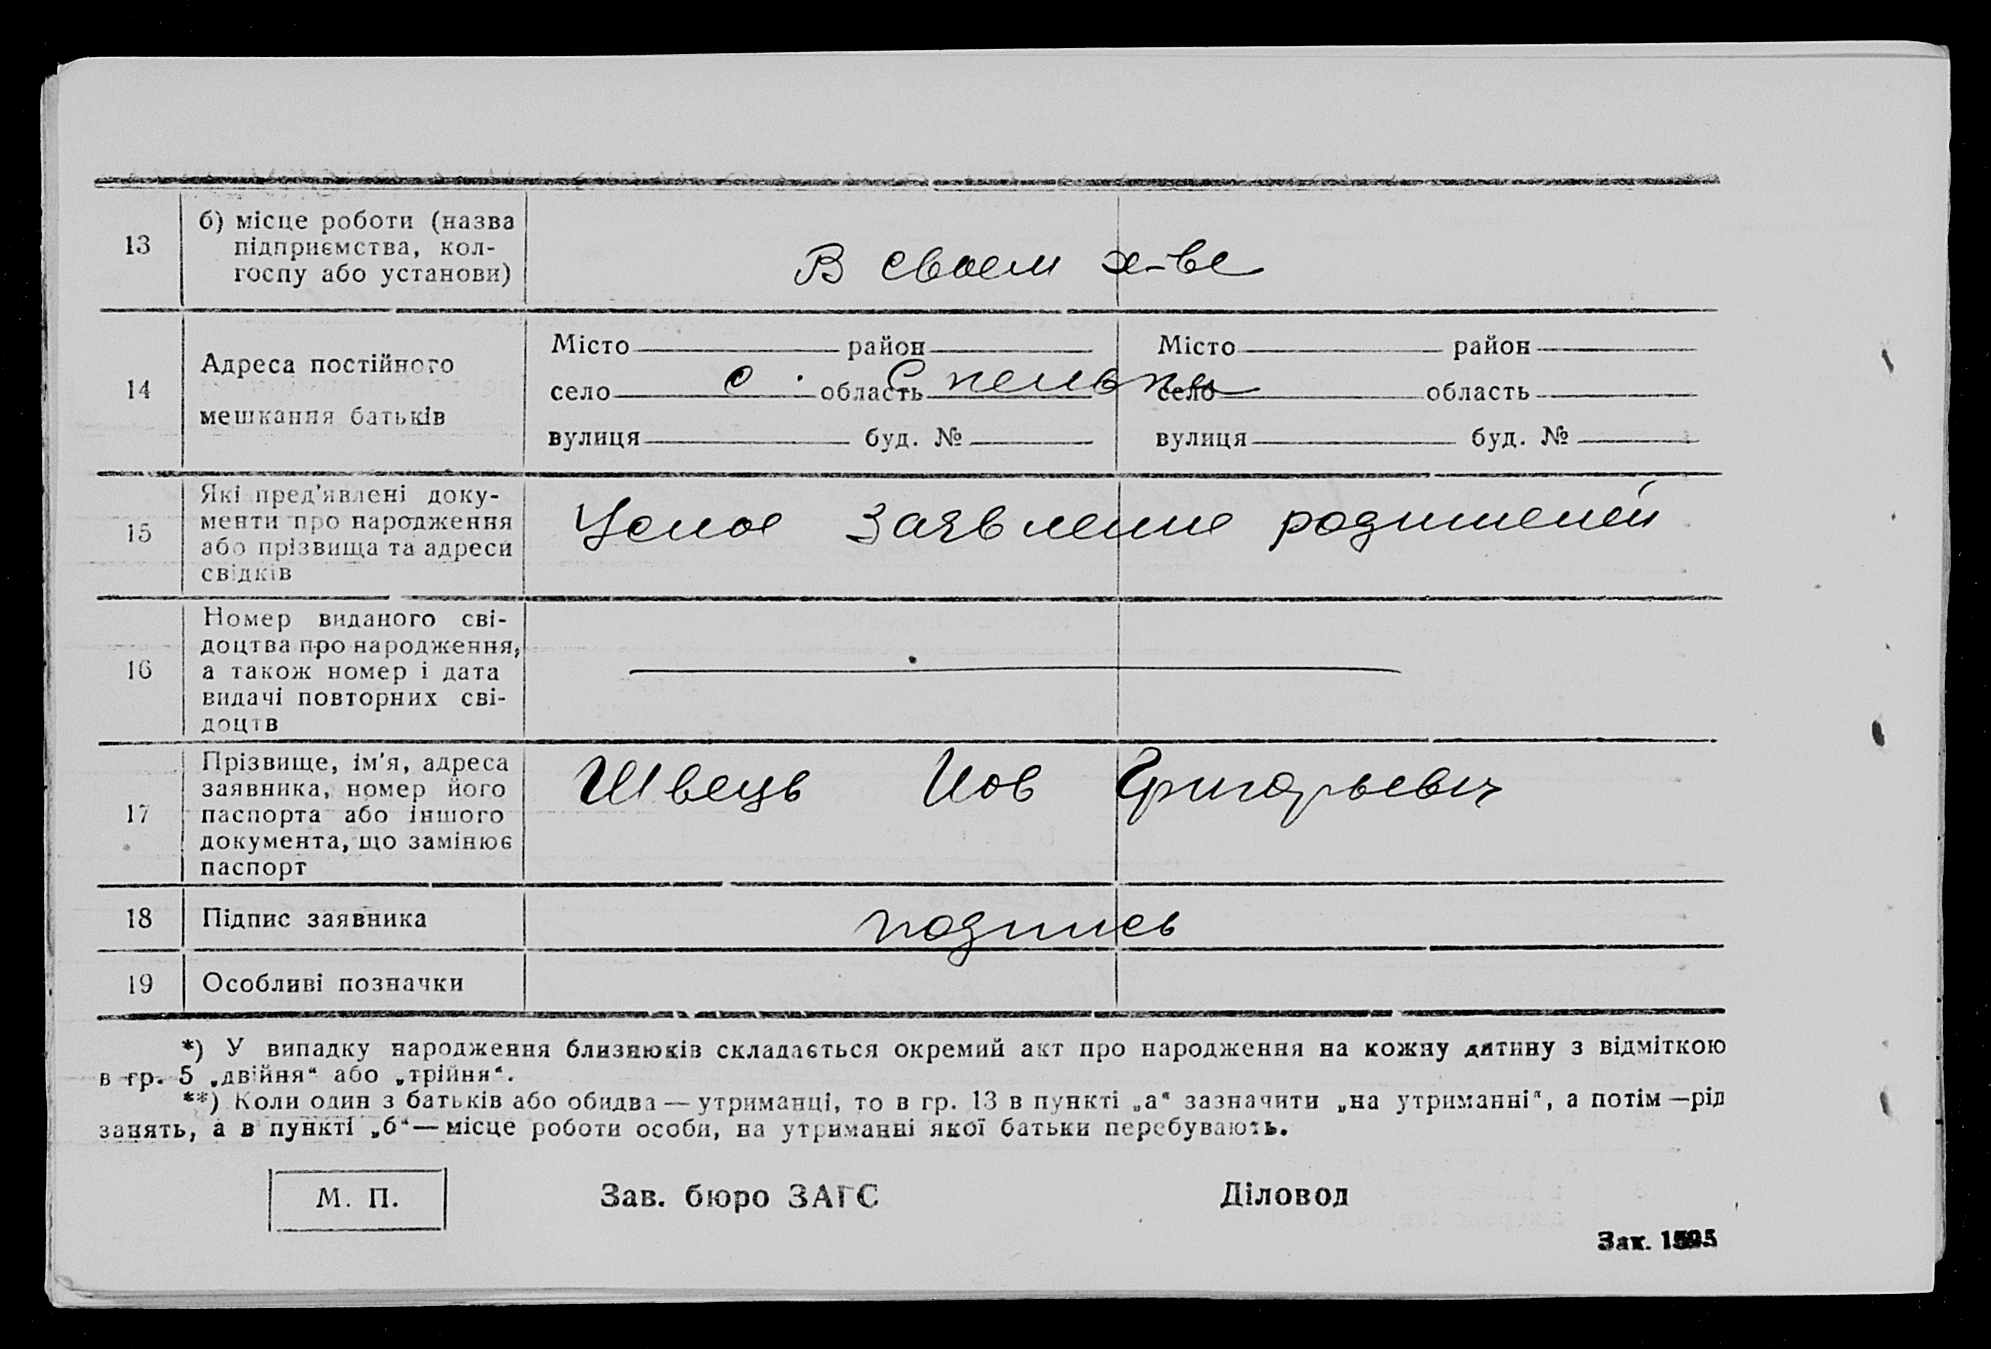 13
б) місце роботи (назва
підприємства, кол-
госпу або установи)
В своем х-ве
14
Адреса постійного
мешкання батьків
Місто район
село с. область
вулиця буд. №
Місто район
село область
вулиця буд. №
15
Які пред'явлені доку-
менти про народження
або прізвища та адреси
свідків
Усное заявление родителей
16
Номер виданого сві-
доцтва про народження,
а також номер і дата
видачі повторних сві-
доцтв
17
Прізвище, ім'я, адреса
заявника, номер його
паспорта або іншого
документа, що замінює
паспорт
Швець Иов Григорьевич
18
Підпис заявника
подпись
19
Особливі позначки
*) У випадку народження близнюків складається окремий акт про народження на кожну дитину з відміткою
в гр. 5 „двійня“ або „трійня“.
**) Коли один з батьків або обидва — утриманці, то в гр. 13 в пункті „а“ зазначити „на утриманні“, а потім — рід
занять, а в пункті „б“ — місце роботи особи, на утриманні якої батьки перебувають.
М. П.
Зав. бюро ЗАГС
Діловод
Зак.